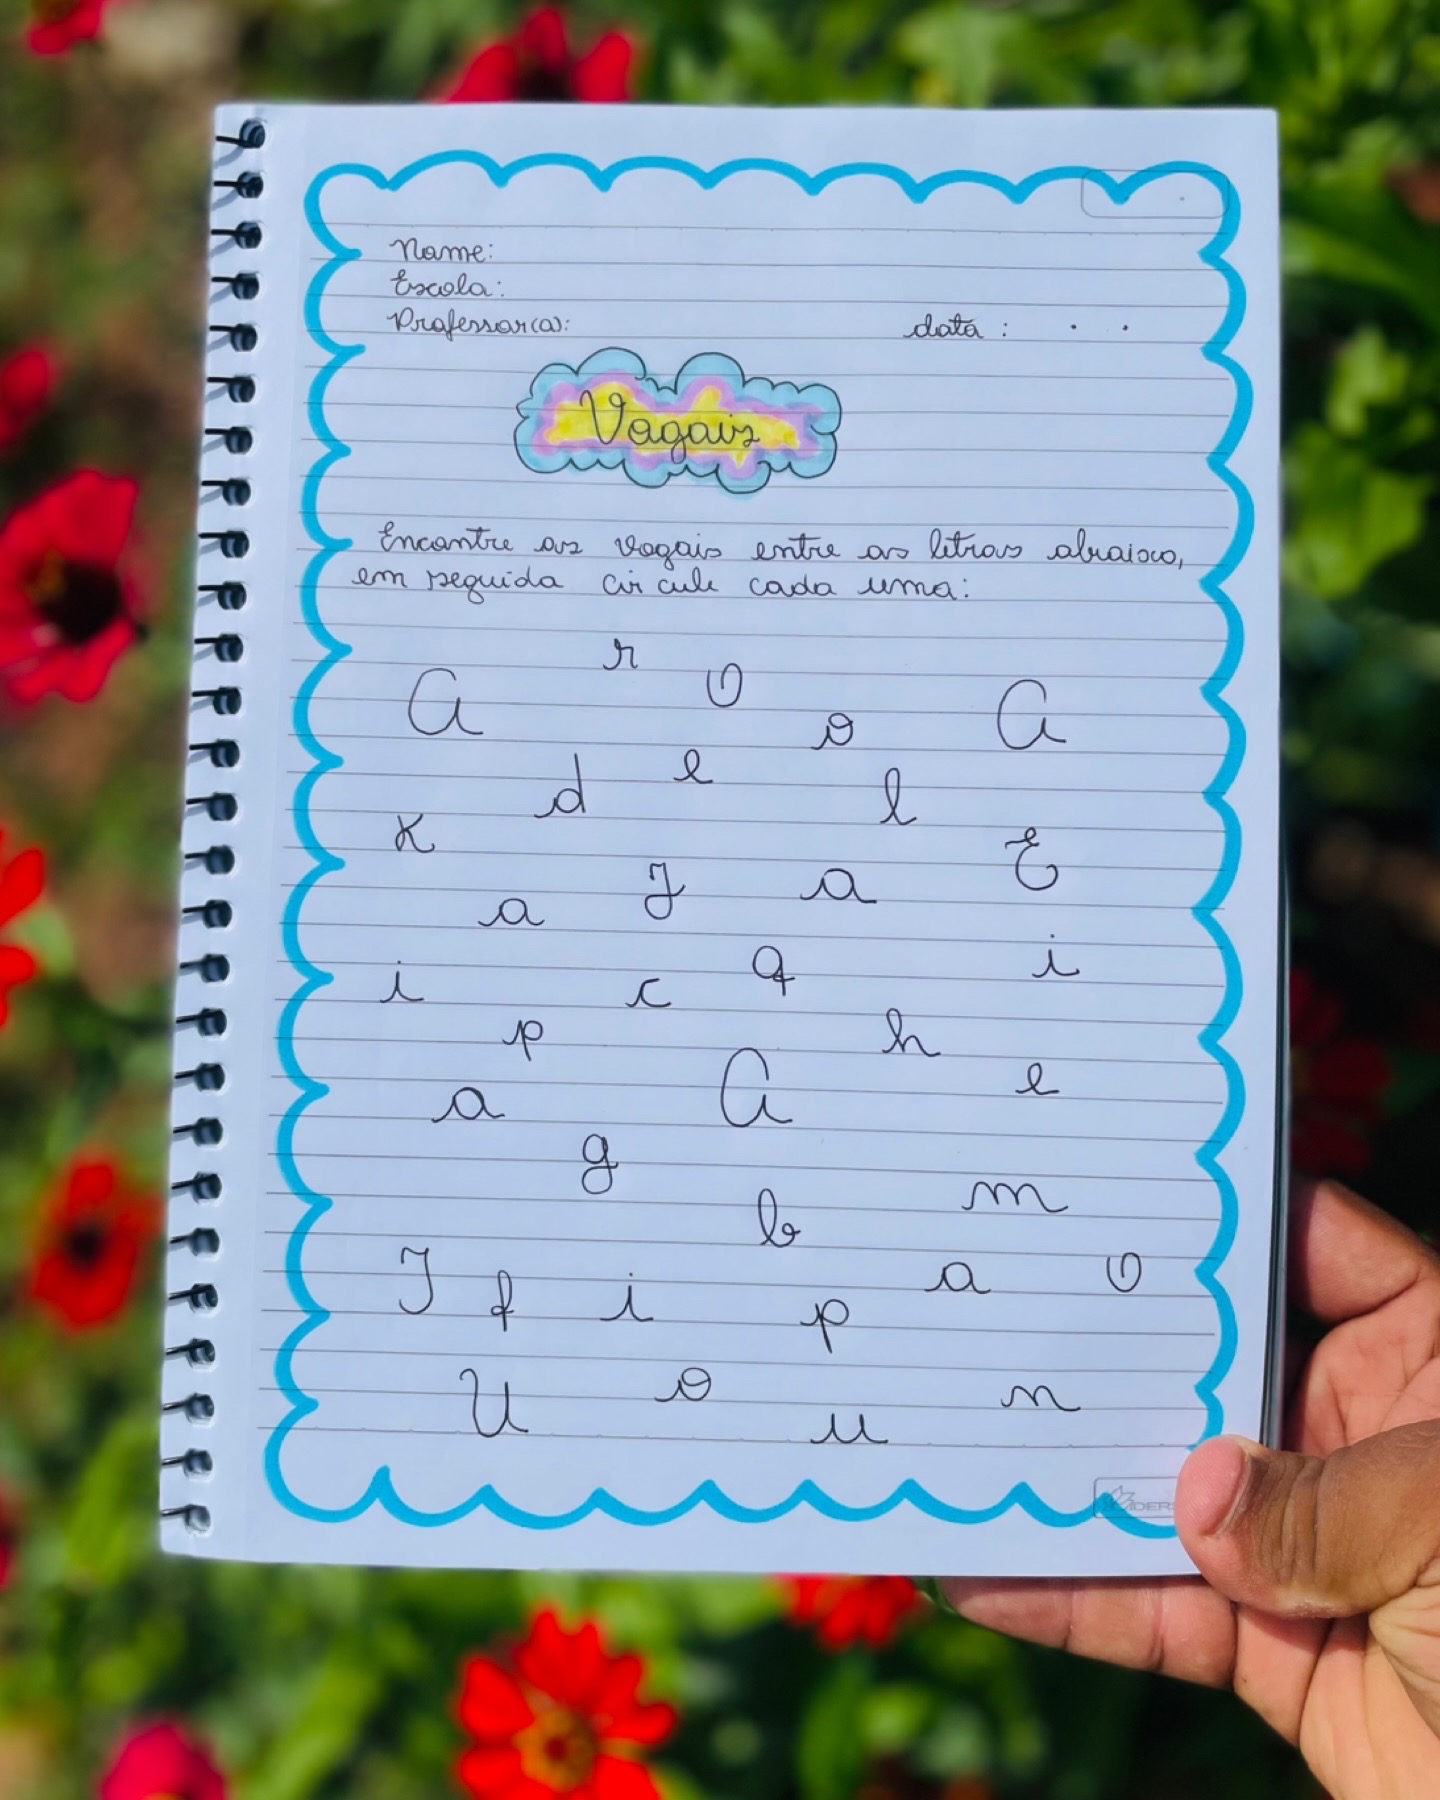 Nome:
Escola:
Professor(a): data : . .
Vogais
Encontre as vogais entre as letras abraixo,
em seguida circule cada uma:
r
A O o A
d e l
K E
a J a
i c q i
p h
a A e
g
b m
I f i p a O
U o u n